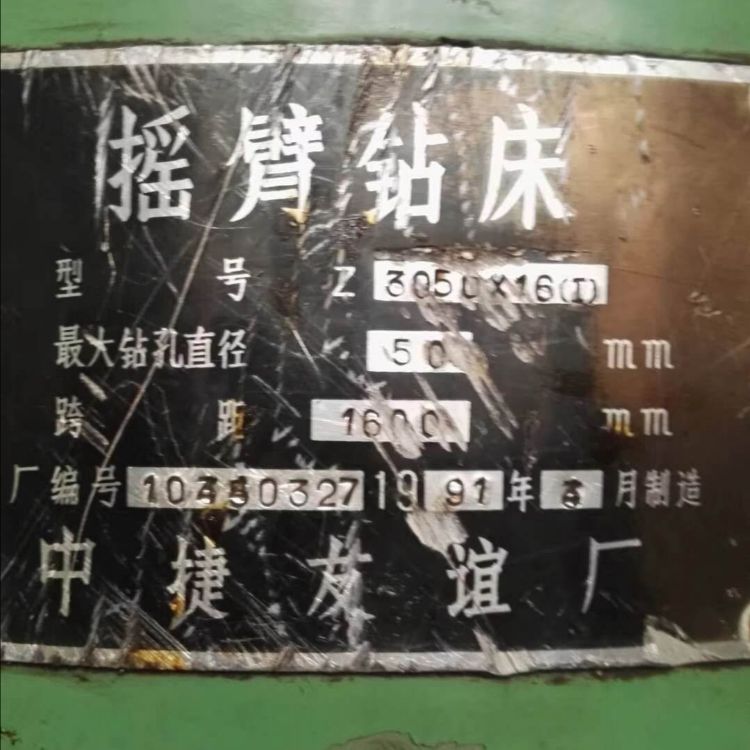 摇臂钻床
型号 Z 3050×16(I)
最大钻孔直径 50 mm
跨距 1600 mm
厂编号 19 91 年 月制造
中捷友谊厂